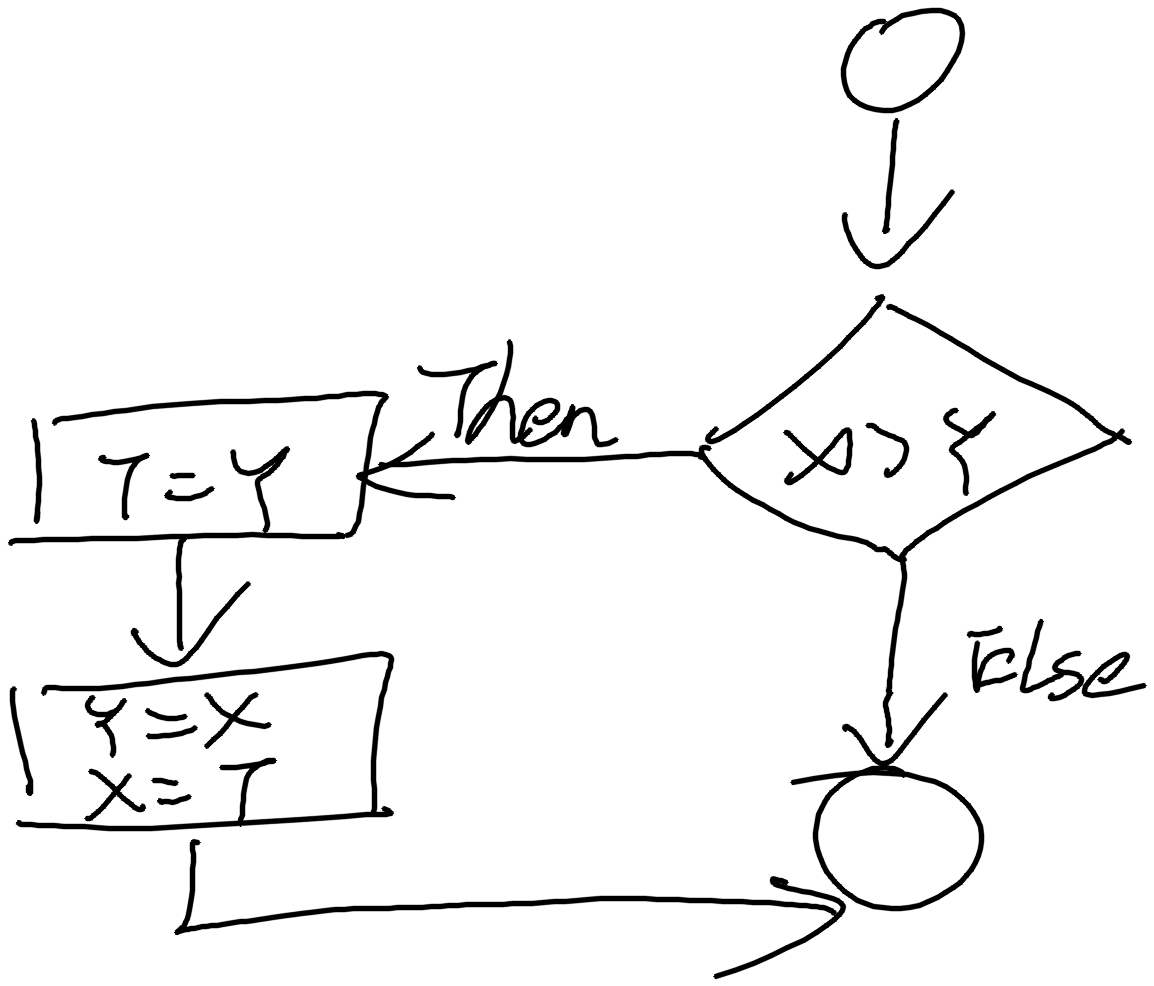 X>Y
Then
T=Y
Y=X
X=T
Else